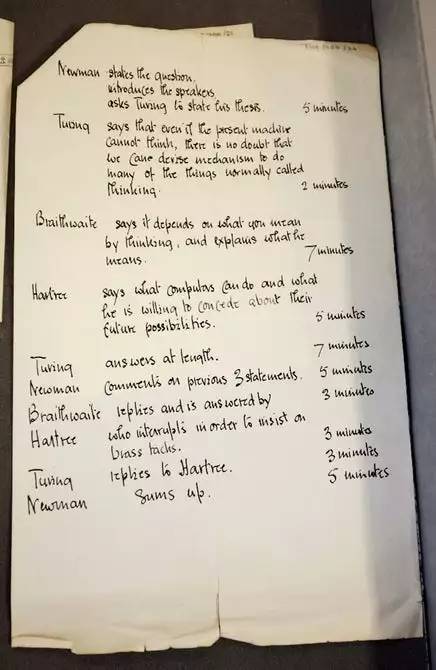 Newman states the question,
introduces the speakers
asks Turing to state his thesis. 5 minutes
Turing says that even if the present machine
cannot think, there is no doubt that
we can devise mechanism to do
many of the things normally called
thinking. 2 minutes
Braithwaite says it depends on what you mean
by thinking, and explains what he
means. 7 minutes
Hartree says what computors can do and what
he is willing to concede about their
future possibilities. 5 minutes
Turing answers at length. 7 minutes
Newman comments on previous 3 statements. 5 minutes
Braithwaite replies and is answered by 3 minutes
Hartree who interrupts in order to insist on
brass tacks. 3 minutes
Turing replies to Hartree. 3 minutes
Newman sums up. 5 minutes